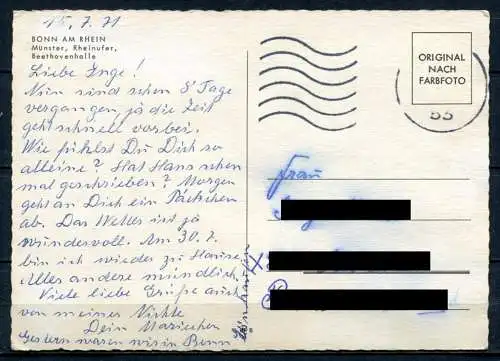 15.7.71
BONN AM RHEIN
Münster, Rheinufer,
Beethovenhalle
Liebe Inge!
Nun sind schon 8 Tage
vergangen, ja die Zeit
geht schnell vorbei.
Wie fühlst Du Dich so
alleine? Hat Hans schon
mal geschrieben? Morgen
geht an Dich ein Päckchen
ab. Das Wetter ist ja
wundervoll. Am 30.7.
bin ich wieder zu Hause.
Alles andere mündlich.
Viele liebe Grüße auch
von meiner Nichte
Dein Mariechen
Gestern waren wir in Bonn
ORIGINAL
NACH
FARBFOTO
53
Frau